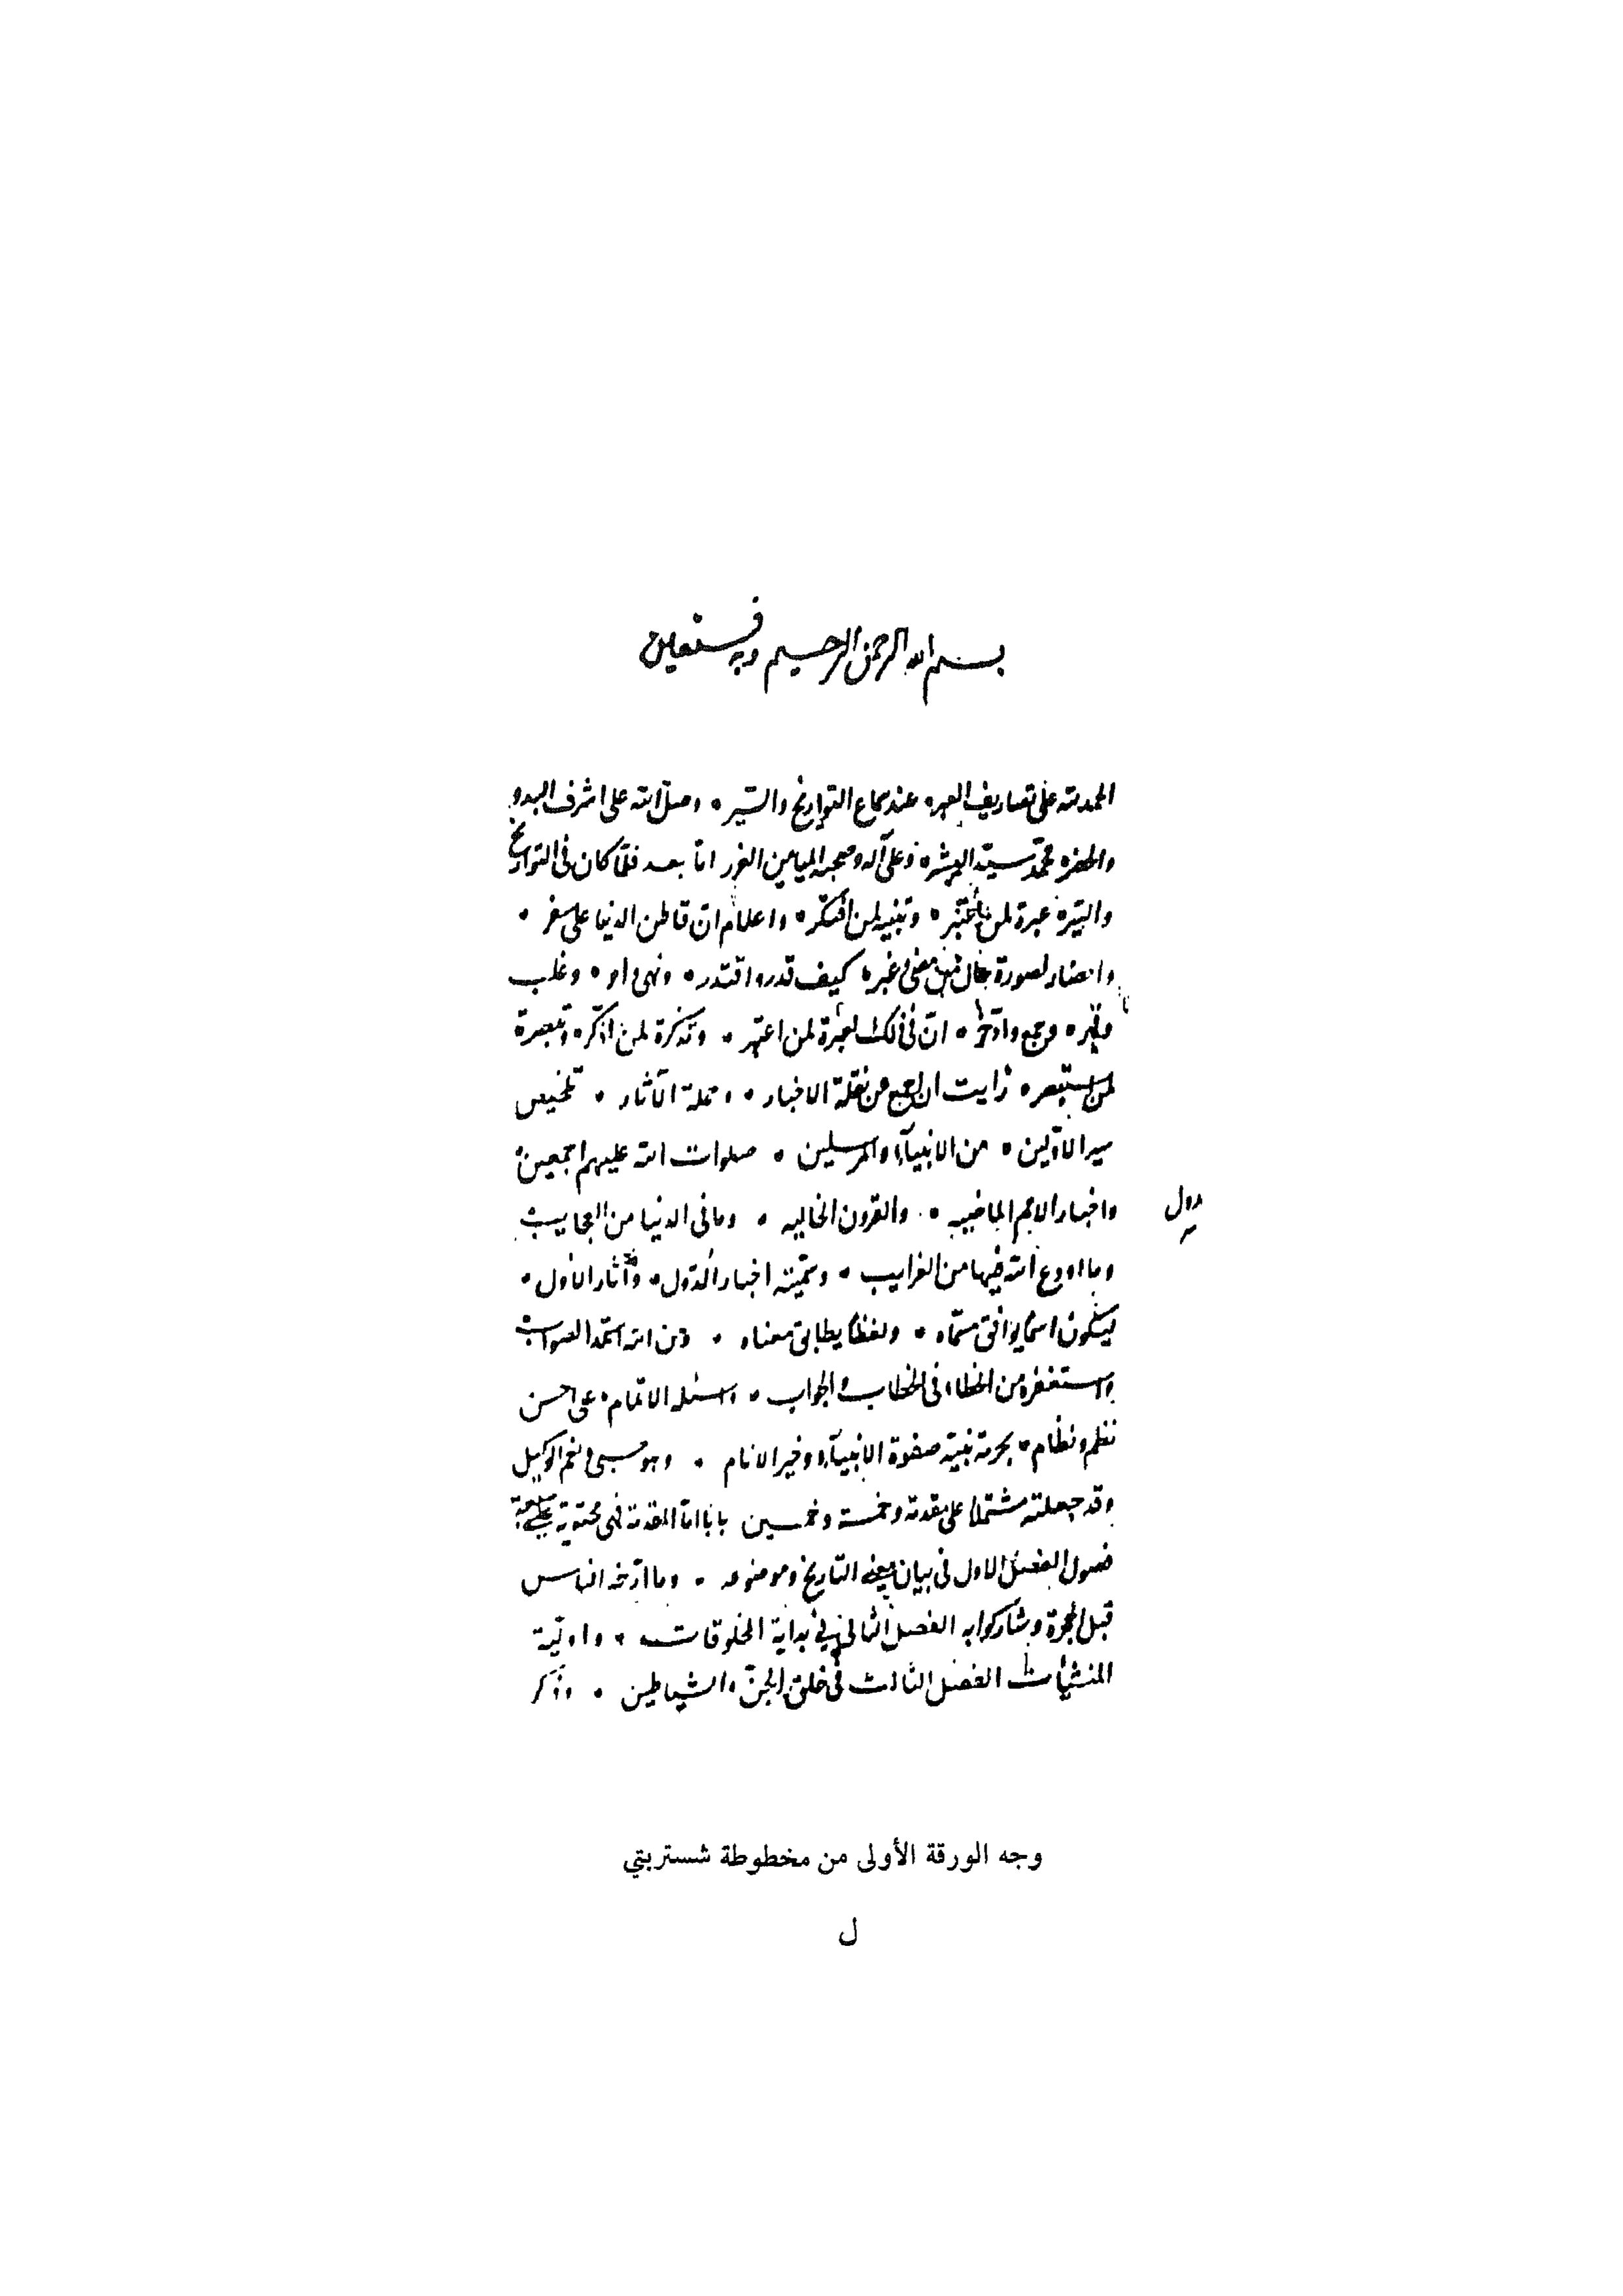 بسم الله الرحمن الرحيم وبه نستعين
الحمد لله على تصاريف العبر • عند سماع التواريخ والسير • وصلى الله على اشرف البدو
والحضر • محمد سيد البشر • وعلى آله وصحبه الميامين الغرر اما بعد فلما كان في التواريخ
والسير • عبرة لمن اعتبر • وتنبيه لمن افتكر • واعلام ان قاطن الدنيا على سفر •
واحضار لصورة حال من مضى وغبر • كيف قدر واقتدر • ونهى وامر • وغلب
وقهر • وجمع وادخر • ان في ذلك لعبرة لمن اعتبر • وتذكرة لمن اذكر • وتبصرة
لمن استبصر • رايت ان اجمع من نقلة الاخبار • وحملة الآثار • تلخيص
سير الاولين • من الانبيآء والمرسلين • صلوات الله عليهم اجمعين
واخبار الامم الماضيه • والقرون الخاليه • وما في الدنيا من العجايب
دول
وما اودع الله فيها من الغرايب • وسميته اخبار الدول • وآثار الاول •
ليكون اسما يوافق مسماه • ولفظا يطابق معناه • ومن الله استمد الصواب
واستغفره من الخطاء في الخطاب والجواب • واسئله الاتمام • على احسن
نظم ونظام • بحرمة نبيه صفوة الانبيآء وخير الانام • وهو حسبى ونعم الوكيل
وقد جعلته مشتملا على مقدمة وخمسة وخمسين بابا اما المقدمة فهى محتوية على سبعة
فصول الفصل الاول في بيان معنى التاريخ وموضوعه • وما ارخه الناس
قبل الهجرة وشاركوا به الفصل الثاني في بداية المخلوقات • واولية
المنشيات الفصل الثالث في خلق الجن والشياطين • وذكر
وجه الورقة الأولى من مخطوطة شستربتي
ل